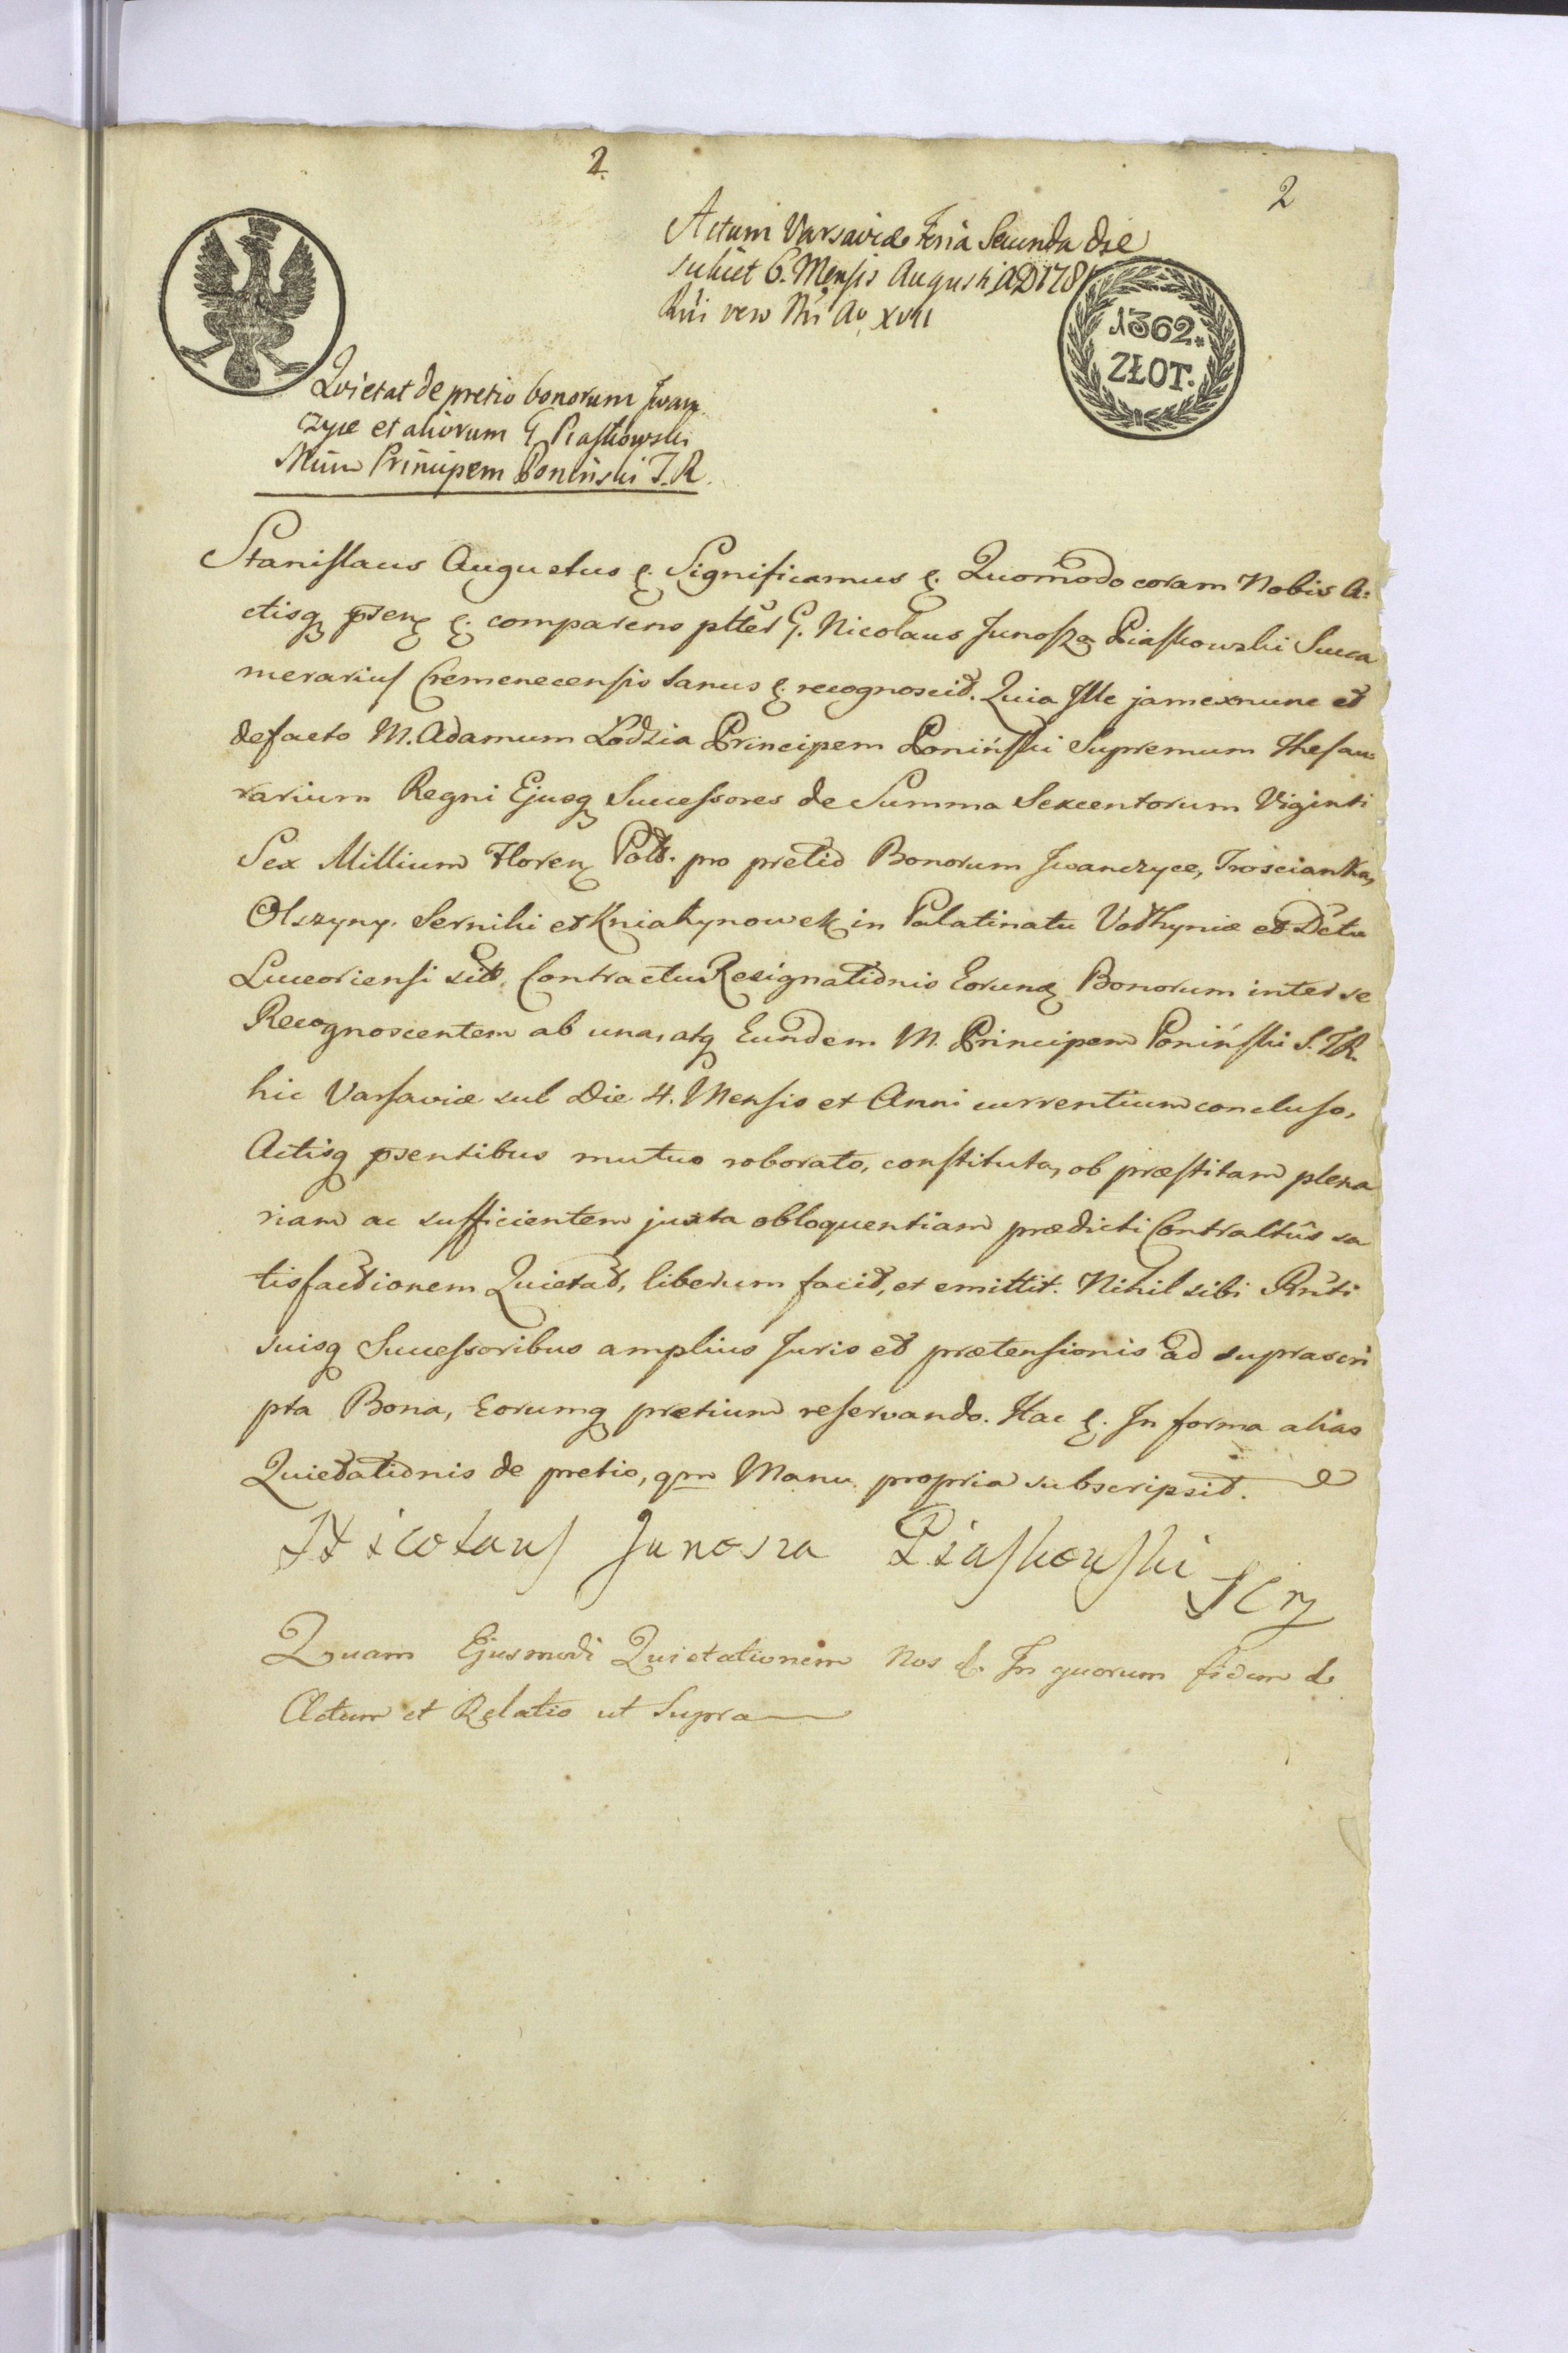 2.
2
Actum Varsaviæ Feria Secunda die
scilicet 6. Mensis Augusti AD 178
Rñi vero Nri Aõ XVII
1362.
ZŁOT.
Quietat de pretio bonorum Iwan
czyce et aliorum G Piaskowski
Mñum Principem Poniński T. R.
Stanislaus Augustus &. Significamus &. Quomodo coram Nobis A:
ctisq pñen &. comparens pltẽr G. Nicolaus Junosza Piaskowski Succa
merarius Cremenecensis Sanus &. recognoscit. Quia Ille jam ex nunc et
de facto M. Adamum Lodzia Principem Poniński Supremum Thesau
rarium Regni Ejusq Successores de Summa Sexcentorum Viginti
Sex Millium Floren Poll. pro pretio Bonorum Iwanczyce, Trościanka,
Olszyny, Serniki et Kniahynowek in Palatinatu Volhyniæ et Dctu
Luceoriensi sit. Contractu Resignationis Eorund Bonorum inter se
Recognoscentem ab una, atq Eundem M. Principem Poniński S. T. R.
hic Varsaviæ sub Die 4. Mensis et Anni currentium concluso,
Actisq psentibus mutuo roborato, constituta, ob præstitam plena
riam ac sufficientem juxta obloquentiam prædicti Contractûs sa
tisfactionem Quietat, liberum facit, et emittit. Nihil sibi Rñti
suisq Successoribus amplius Juris et prætensionis ad suprascri
pta Bona, Eorumq pretium reservando. Hac &. In forma alias
Quietationis de pretio, qm Manu propria subscripsit.
Nicolaus Junosza Piaskowski
Quam Ejusmodi Quietationem Nos &. In quorum fidem &
Actum et Relatio ut Supra